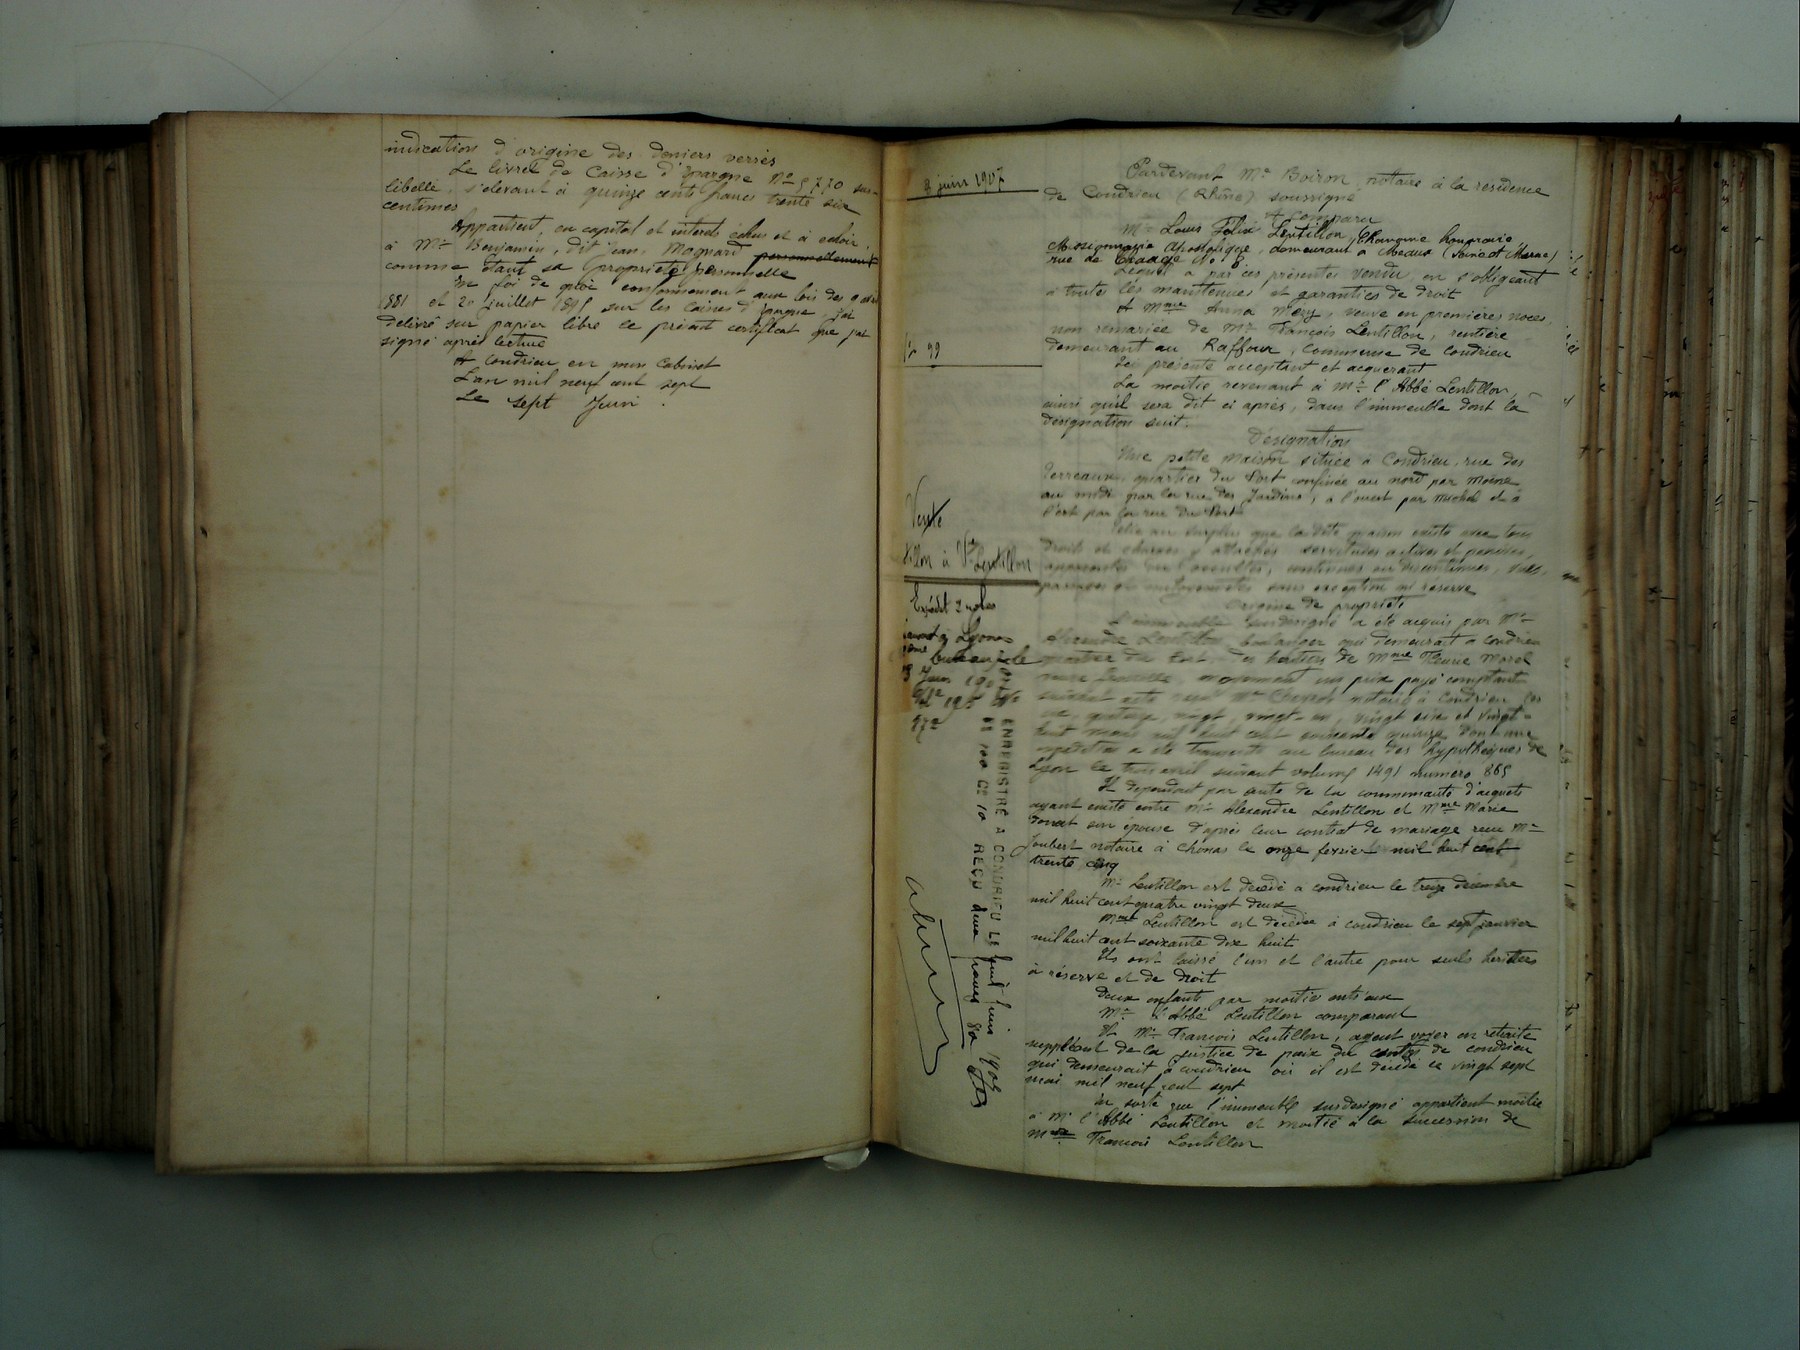 indication d'origine des deniers versés
Le livret de Caisse d'Epargne No 5770 sus-
libellé, s'élevant à quinze cents francs trente six
centimes
Appartient, en capital et intérêts échus et à échoir,
à Mr Benjamin, dit Jean, Magnard personnellement
comme étant sa propriété personnelle
En foi de quoi conformément aux lois des 9 avril
1881 et 20 juillet 1895 sur les Caisses d'Epargne, j'ai
délivré sur papier libre le présent certificat que j'ai
signé après lecture
A Condrieu en mon Cabinet
L'an mil neuf cent sept
Le sept Juin.
8 juin 1907
99
Vente
tillon à Ve Lentillon
Expédit 2 roles
à Lyon
bureau le
Juin 1907
Vol 195 No
ENREGISTRÉ A CONDRIEU LE huit juin 1907
REÇU deux francs
Pardevant Me Boiron, notaire à la résidence
de Condrieu (Rhône) soussigné
A Comparu
Mr Louis Félix Lentillon, Chanoine honoraire,
Missionnaire Apostolique, demeurant à Meaux (Seine et Marne)
rue de Chaage No 8
Lequel a par ces présentes vendu en s'obligeant
à toutes les maintenues et garanties de droit
A Mme Anna Méry, veuve en premières noces,
non remariée de Mr François Lentillon, rentière
demeurant au Raffour, commune de Condrieu
Ici présente acceptant et acquerant
La moitié revenant à Mr l'Abbé Lentillon,
ainsi qu'il sera dit ci après, dans l'immeuble dont la
désignation suit.
Désignation
Une petite maison située à Condrieu, rue des
Terreaux, quartier du Port confinée au nord par Moine
au midi par la rue des Jardins, à l'ouest par Michel et à
l'est par la rue du Port
Telle au surplus que la dite maison existe avec tous
droits et charges y attachés servitudes actives et passives,
apparentes ou occultes, continues ou discontinues, vues,
passages et mitoyennetés sans exception ni réserve
Origine de propriété
L'immeuble susdésigné a été acquis par Mr
Alexandre Lentillon, boulanger qui demeurait à Condrieu
quartier du Port, des héritiers de Mme Fleurie Morel
veuve moyennant un prix payé comptant
suivant acte reçu Me notaire à Condrieu les
quinze, vingt, vingt-un, vingt six et vingt-
huit mars mil huit cent soixante quinze dont une
expédition a été transcrite au bureau des hypothèques de
Lyon le trois avril suivant volume 1491 numéro 865
Il dépendait par suite de la communauté d'acquêts
ayant existé entre Mr Alexandre Lentillon et Mme Marie
son épouse d'après leur contrat de mariage reçu Me
Joubert notaire à Chonas le onze février mil huit cent
trente cinq
Mr Lentillon est décédé à Condrieu le treize décembre
mil huit cent quatre vingt deux
Mme Lentillon est décédée à Condrieu le sept janvier
mil huit cent soixante dix huit
Ils ont laissé l'un et l'autre pour seuls héritiers
à réserve et de droit
Deux enfants par moitié entr'eux
Mr l'Abbé Lentillon comparant
Et Mr François Lentillon, agent voyer en retraite
suppléant de la justice de paix du canton de Condrieu
qui demeurait à Condrieu où il est décédé le vingt sept
mai mil neuf cent sept
En sorte que l'immeuble susdésigné appartient moitié
à Mr l'Abbé Lentillon et moitié à la succession de
Mr François Lentillon